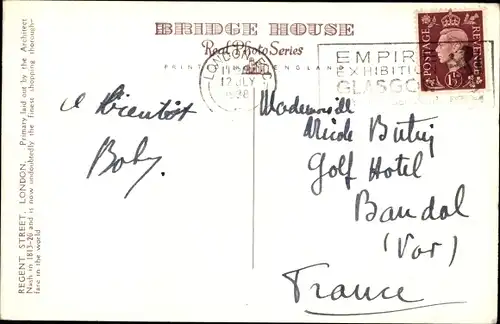 BRIDGE HOUSE
Real Photo Series
LONDON
12 JLY
1938
EMPIRE
EXHIBITI
GLASGO
POSTAGE
REVENUE
1½D
A bientôt
Boby
Mademoiselle
Golf Hotel
Bandol
(Var)
France
REGENT STREET, LONDON. Primary laid out by the Architect
Nash in 1813-20 and is now undoubtedly the finest shopping thorough-
fare in the world